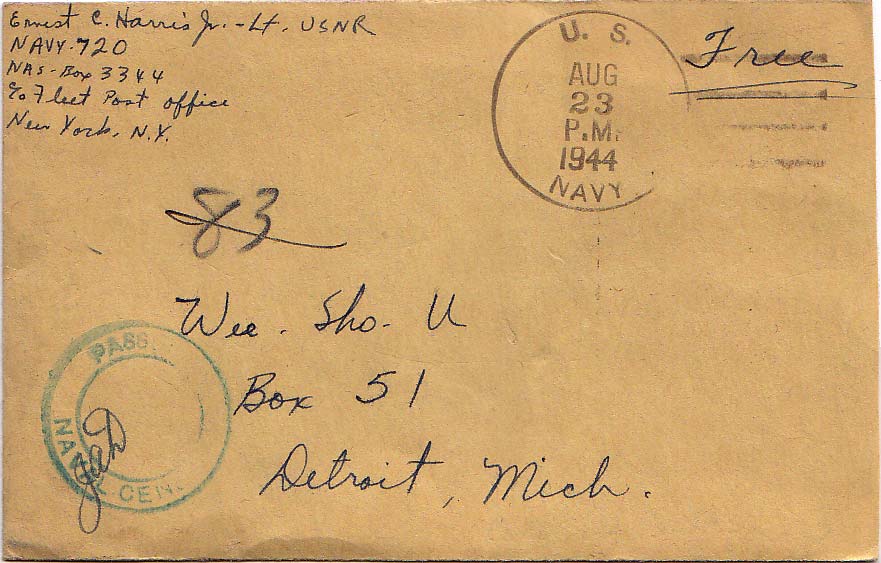 Ernest C. Harris Jr. - Lt. USNR
NAVY-720
NAS-Box 3344
c/o Fleet Post Office
New York, N.Y.
U. S.
AUG
23
P.M.
1944
NAVY
Free
83
Wee. Sho. U
Box 51
Detroit, Mich.
PASS
NAVAL CEN.